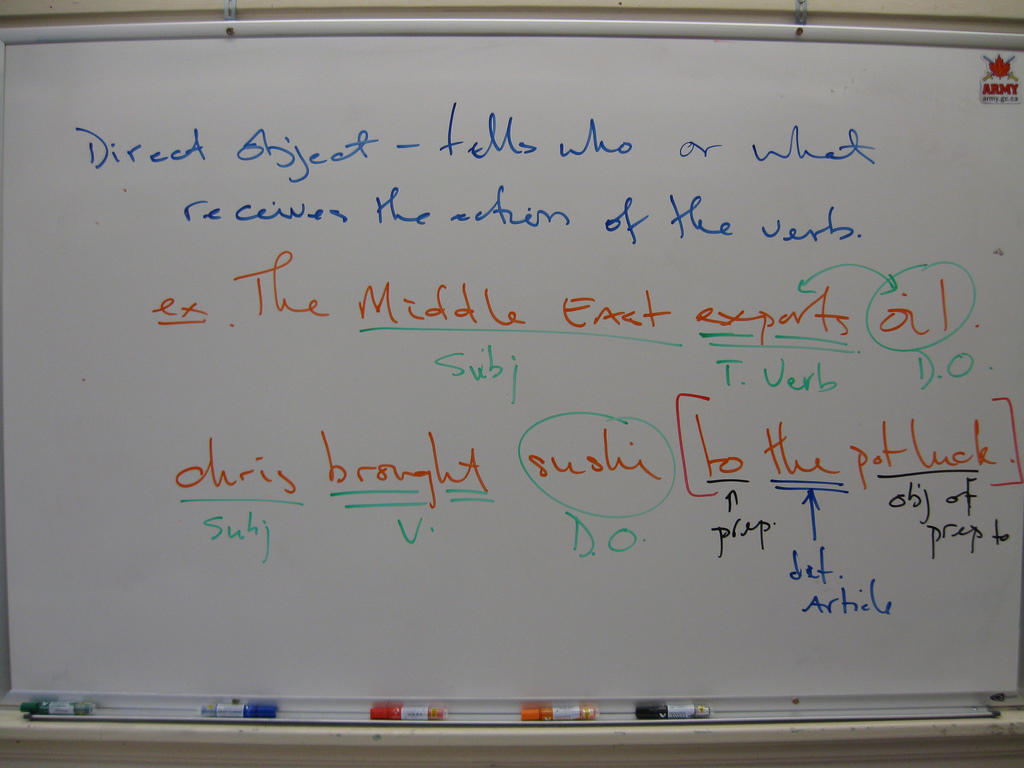 Direct Object - tells who or what
receives the action of the verb.
ex. The Middle East exports oil.
Subj T. Verb D.O.
chris brought sushi [to the potluck.]
Subj V. D.O. prep. obj of
prep to
def.
Article
ARMY
army.gc.ca